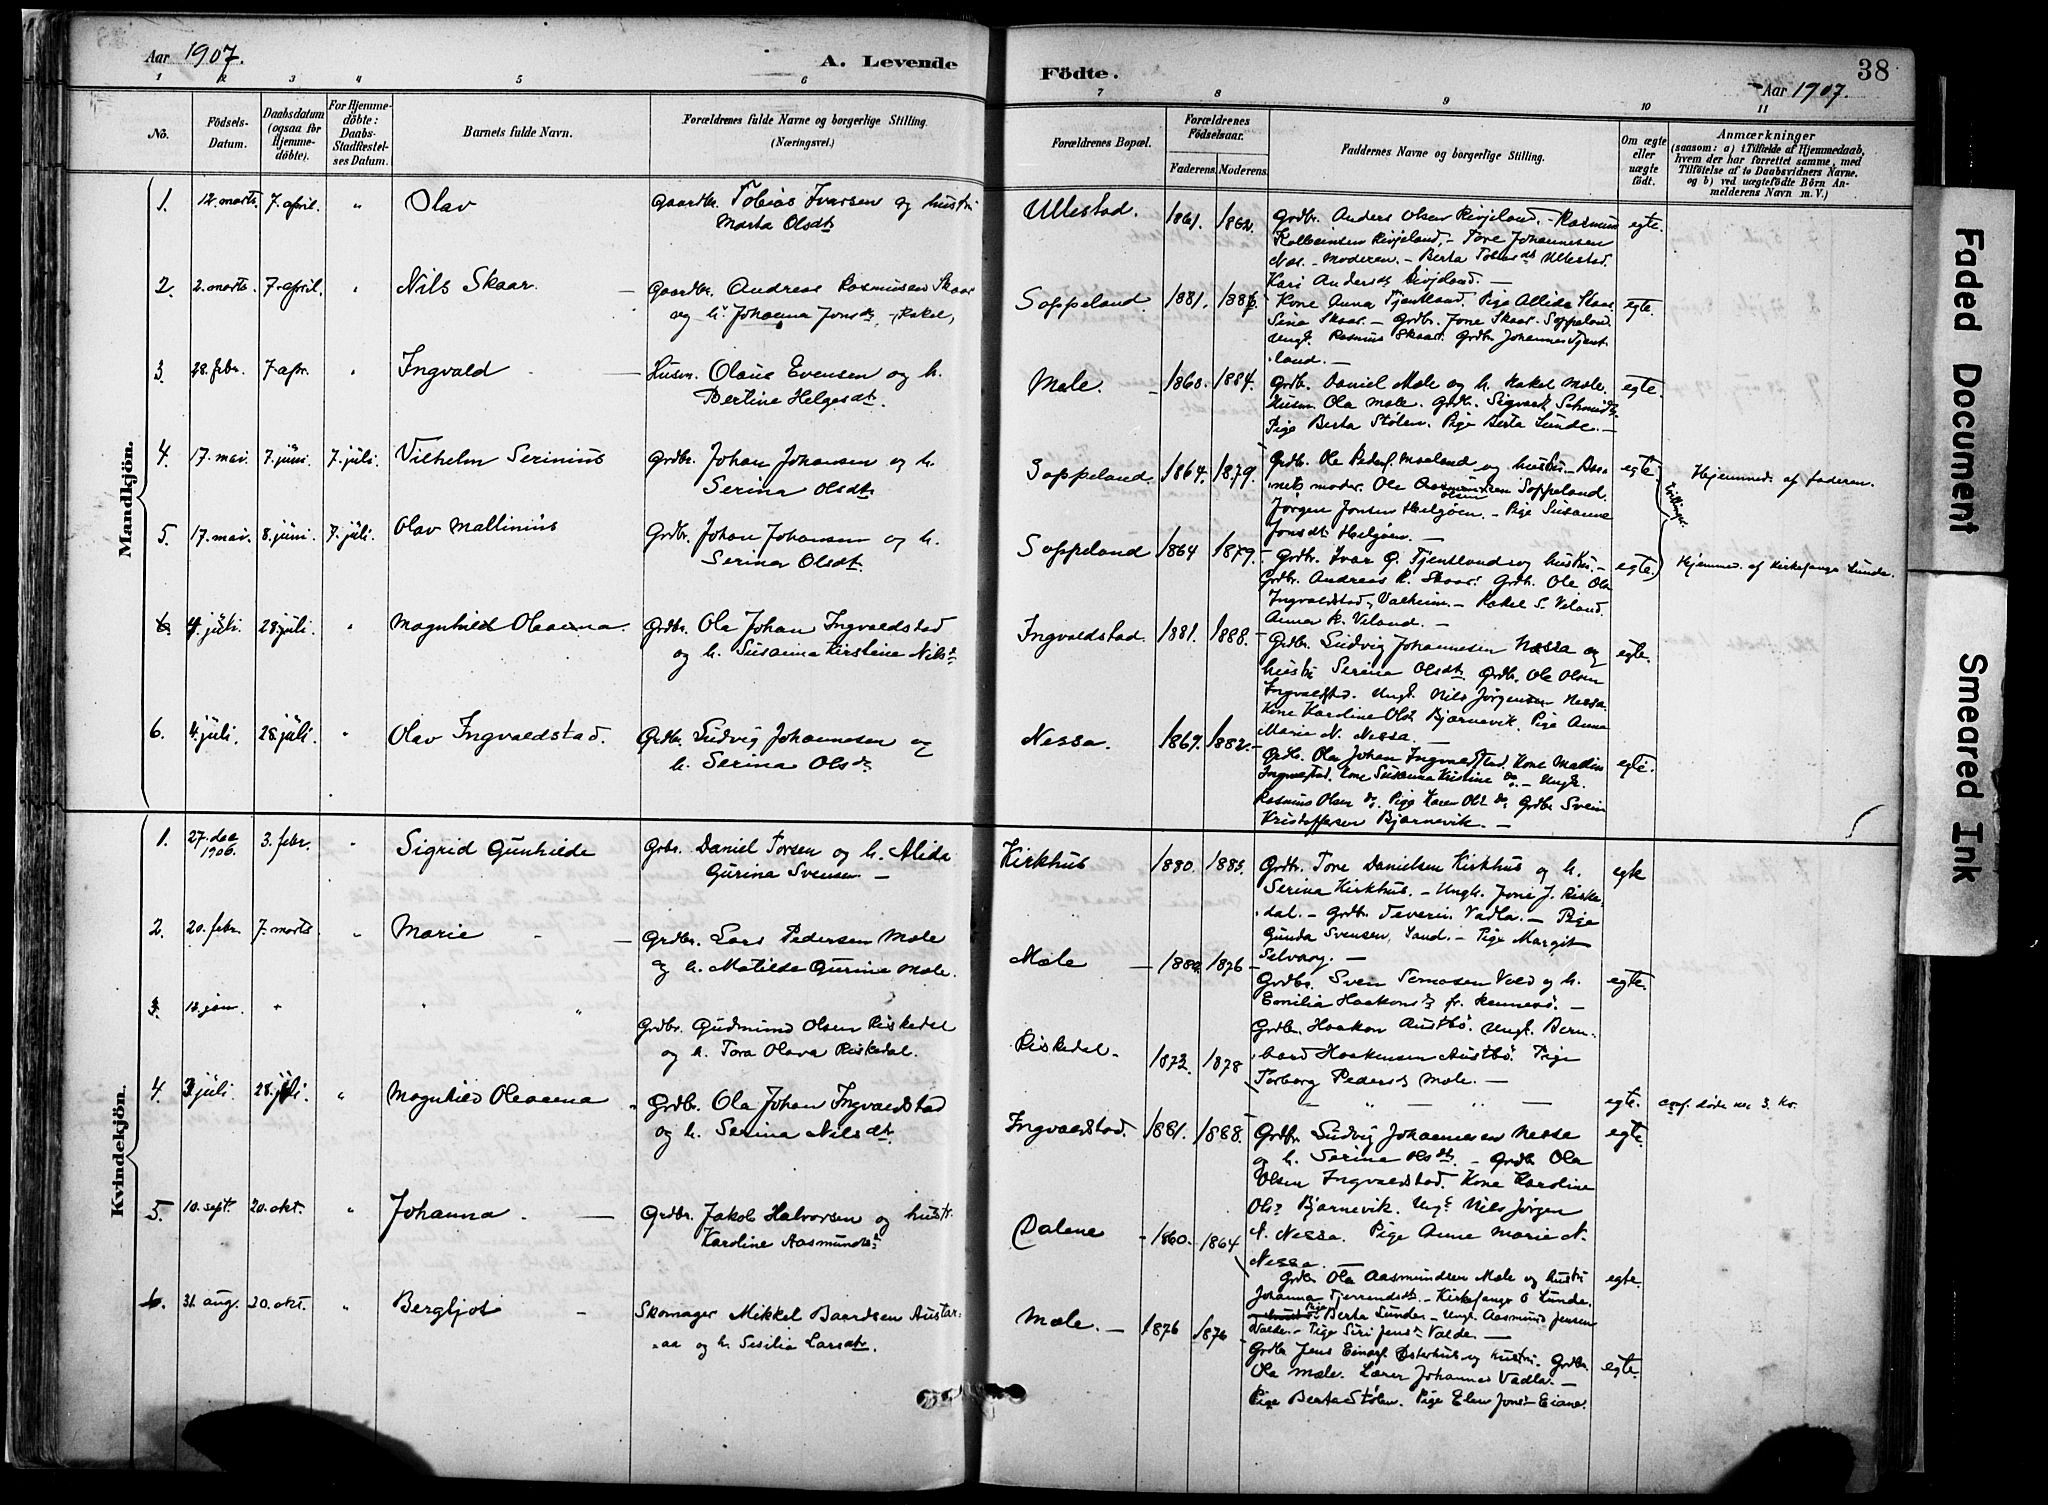 Aar 1907.
A. Levende Födte.
38
Aar 1907.
1 2 3 " 5 6 7 8 9 10 11
No.
Födsels-Datum.
Daabsdatum (ogsaa for Hjemme-döbte).
For Hjemme-döbte: Daabs-Stadfæstel-ses Datum.
Barnets fulde Navn.
Forældrenes fulde Navne og borgerlige Stilling. (Næringsvei.)
Forældrenes Bopæl.
Forældrenes Födselsaar.
Faderens. Moderens.
Faddernes Navne og borgerlige Stilling.
Om ægte eller uægte födt.
Anmærkninger
(saasom: a) i Tilfælde af Hjemmedaab,
hvem der har forrettet samme, med
Tilföielse af to Daabsvidners Navne.
og b) ved uægtefödte Börn An-
melderens Navn m. V.)
Mandkjön.
1. 12. marts. 7. april. " Olav
Gaardbr. Tobias Ivarsen og hustru
Marta Olsdt.
Ullestad. 1861. 1862.
Grdbr. Anders Olsen Rivjeland. - Rasmus
Kolbeinsen Rivjeland, - Tore Johannesen
Næs. - Moderen. - Berta Tobiasdt Ullestad.
Kari Andersdt Rivjeland. -
egte.
2. 2. marts. 7. april. " Nils Skaar. -
Gaardbr. Andreas Rasmusen Skaar
og h. Johanna Jonsdt, (Rakel)
Soppeland. 1881.
Kone Anna Tjentland. Pige Allida Skaar
Sina Skaar. - Grdbr. Jone Skaar. Soppeland.
Ungk. Rasmus Skaar. Grdbr Johannes Tjent-
land. -
egte.
3. 28. febr. 7. apr. " Ingvald -
Husm. Olaus Evensen og h.
Bertine Helgesdt.
Mæle. - 1860. 1884.
Grdbr. Daniel Mæle og h. Rakel Mæle.
Husm Ola Mæle. Grdb. Sigvart Schmidt.
Pige Berta Stølen. Pige Berta Lunde. -
egte.
4. 17. mai. 7. juni. 7. juli. Vilhelm Serinius
Grdbr. Johan Johansen og h.
Serina Olsdt.
Soppeland 1864. 1879.
Grdbr. Ole Peders. Maaland og hustru - Bar-
nets moder. Ole Aasmundsen Soppeland.
Jørgen Jonsen Helgøen. - Pige Susanne
Jonsdt. Helgøen. -
egte. Tvillinger. Hjemmed. af faderen.
5. 17. mai. 8. juni. 7. juli. Olav Mallinius
Grdbr. Johan Johansen og h.
Serina Olsdt.
Soppeland 1864 1879.
Grdbr. Ivar G. Tjentland og hustru. -
Grdbr. Andreas R. Skaar. Grdbr. Ole Ols
Ingvaldstad, Valheim. - Rakel S. Veland.
Anna R. Veland. -
egte. Hjemmed. af kirkesanger Lunde.
6. 4. juli. 28. juli. " Magnhild Oleaena.
Grdbr. Ola Johan Ingvaldstad
og h. Susanna Kirstine Nilsdt
Ingvaldstad. 1881. 1888.
Grdbr. Ludvig Johannesen Nessa og
hustru Serina Olsdt. Grdbr. Ole Olsen
Ingvaldstad. Ungk. Nils Jørgensen Nessa
Kone Karoline Olsdt Bjørnevik. Pige Anna
Marie N. Nessa. -
egte.
6. 4. juli. 28. juli. " Olav Ingvaldstad.
Grdbr. Ludvig Johannesen og
h. Serina Olsdt.
Nessa. 1867. 1882.
Grdb. Ola Johan Ingvaldstad. Kone Mallin
Ingvalstad. Kone Susanna Kristine do. - Ungk.
Rasmus Olsen do, Pige Karen Olsdt do Grdbr Svein
Kristoffersen Bjørnevik. -
egte.
Kvindekjön.
1. 27. dec 1906. 3. febr. " Sigrid Gunhilde
Grbr. Daniel Torsen og h. Alida
Gurina Svensen -
Kirkhus 1880. 1885.
Grdbr. Tore Danielsen Kirkhus og h.
Serina Kirkhus. - Ungk. Jone J. Riske-
dal. - Grdbr. Severin Vadla. - Pige
Gunda Svensen, Sand. - Pige Margit
Selvaag. -
egte
2. 20. febr. 7. marts. " Marie -
Grdbr. Lars Pedersen Mæle
og h. Matilde Gurine Mæle.
Mæle - 1876
Grdbr. Sven Tomasen Vold og h.
Emilia Haakonsdt fr. Rennesø. -
Grdbr. Haakon Austbø. Ungk. Bern-
hard Haakensen Austbø. Pige
Torborg Pedersdt Mæle. -
egte.
3. 12. jan. " " "
Grdbr. Gudmund Olsen Riskedal
og h. Tora Olava Riskedal.
Riskedal. 1872. 1878
- " - " -
egte. conf. døde nr. 3. Kv.
4. 3 juli. 28. juli. " Magnhild Oleaena
Grdbr. Ola Johan Ingvaldstad
og h. Serina Nilsdt.
Ingvaldstad. 1881. 1888.
Grdbr. Ludvig Johannesen Nessa
og h. Serine Olsdt. - Grdb. Ola
Olsen Ingvaldstad. Kone Karoline
Olsdt Bjørnevik. Ungk Nils Jørgen
N. Nessa. Pige Anne Marie N.
Nessa. -
egte.
5. 10. sept. 20. okt. " Johanna. -
Grdbr. Jakob Halvorsen og hustr.
Karoline Aasmundsdt.
Dalene - 1860. 1864
Grdbr Ola Aasmundsen Mæle og hustru
Johanna Tjerrandsdt. - Kirkesanger O Lunde.
Pige Berta Lunde. - Ungk. Aasmund Jensen
Valde. - Pige Siri Jensdt Valde. -
egte.
6. 31. aug. 20. okt. " Bergljot -
Skomager Mikkel Baardsen Austar-
aa og h. Sesilia Larsdt.
Mæle. - 1876 1876
Grdbr Jens Einarsf. Østerhus og hustru. Grdbr.
Ola Mæle. Lærer Johannes Vadla. -
Pige Berta Stølen. Pige Elen Jonsdt Eiane.
egte.
Faded Document
Smeared Ink